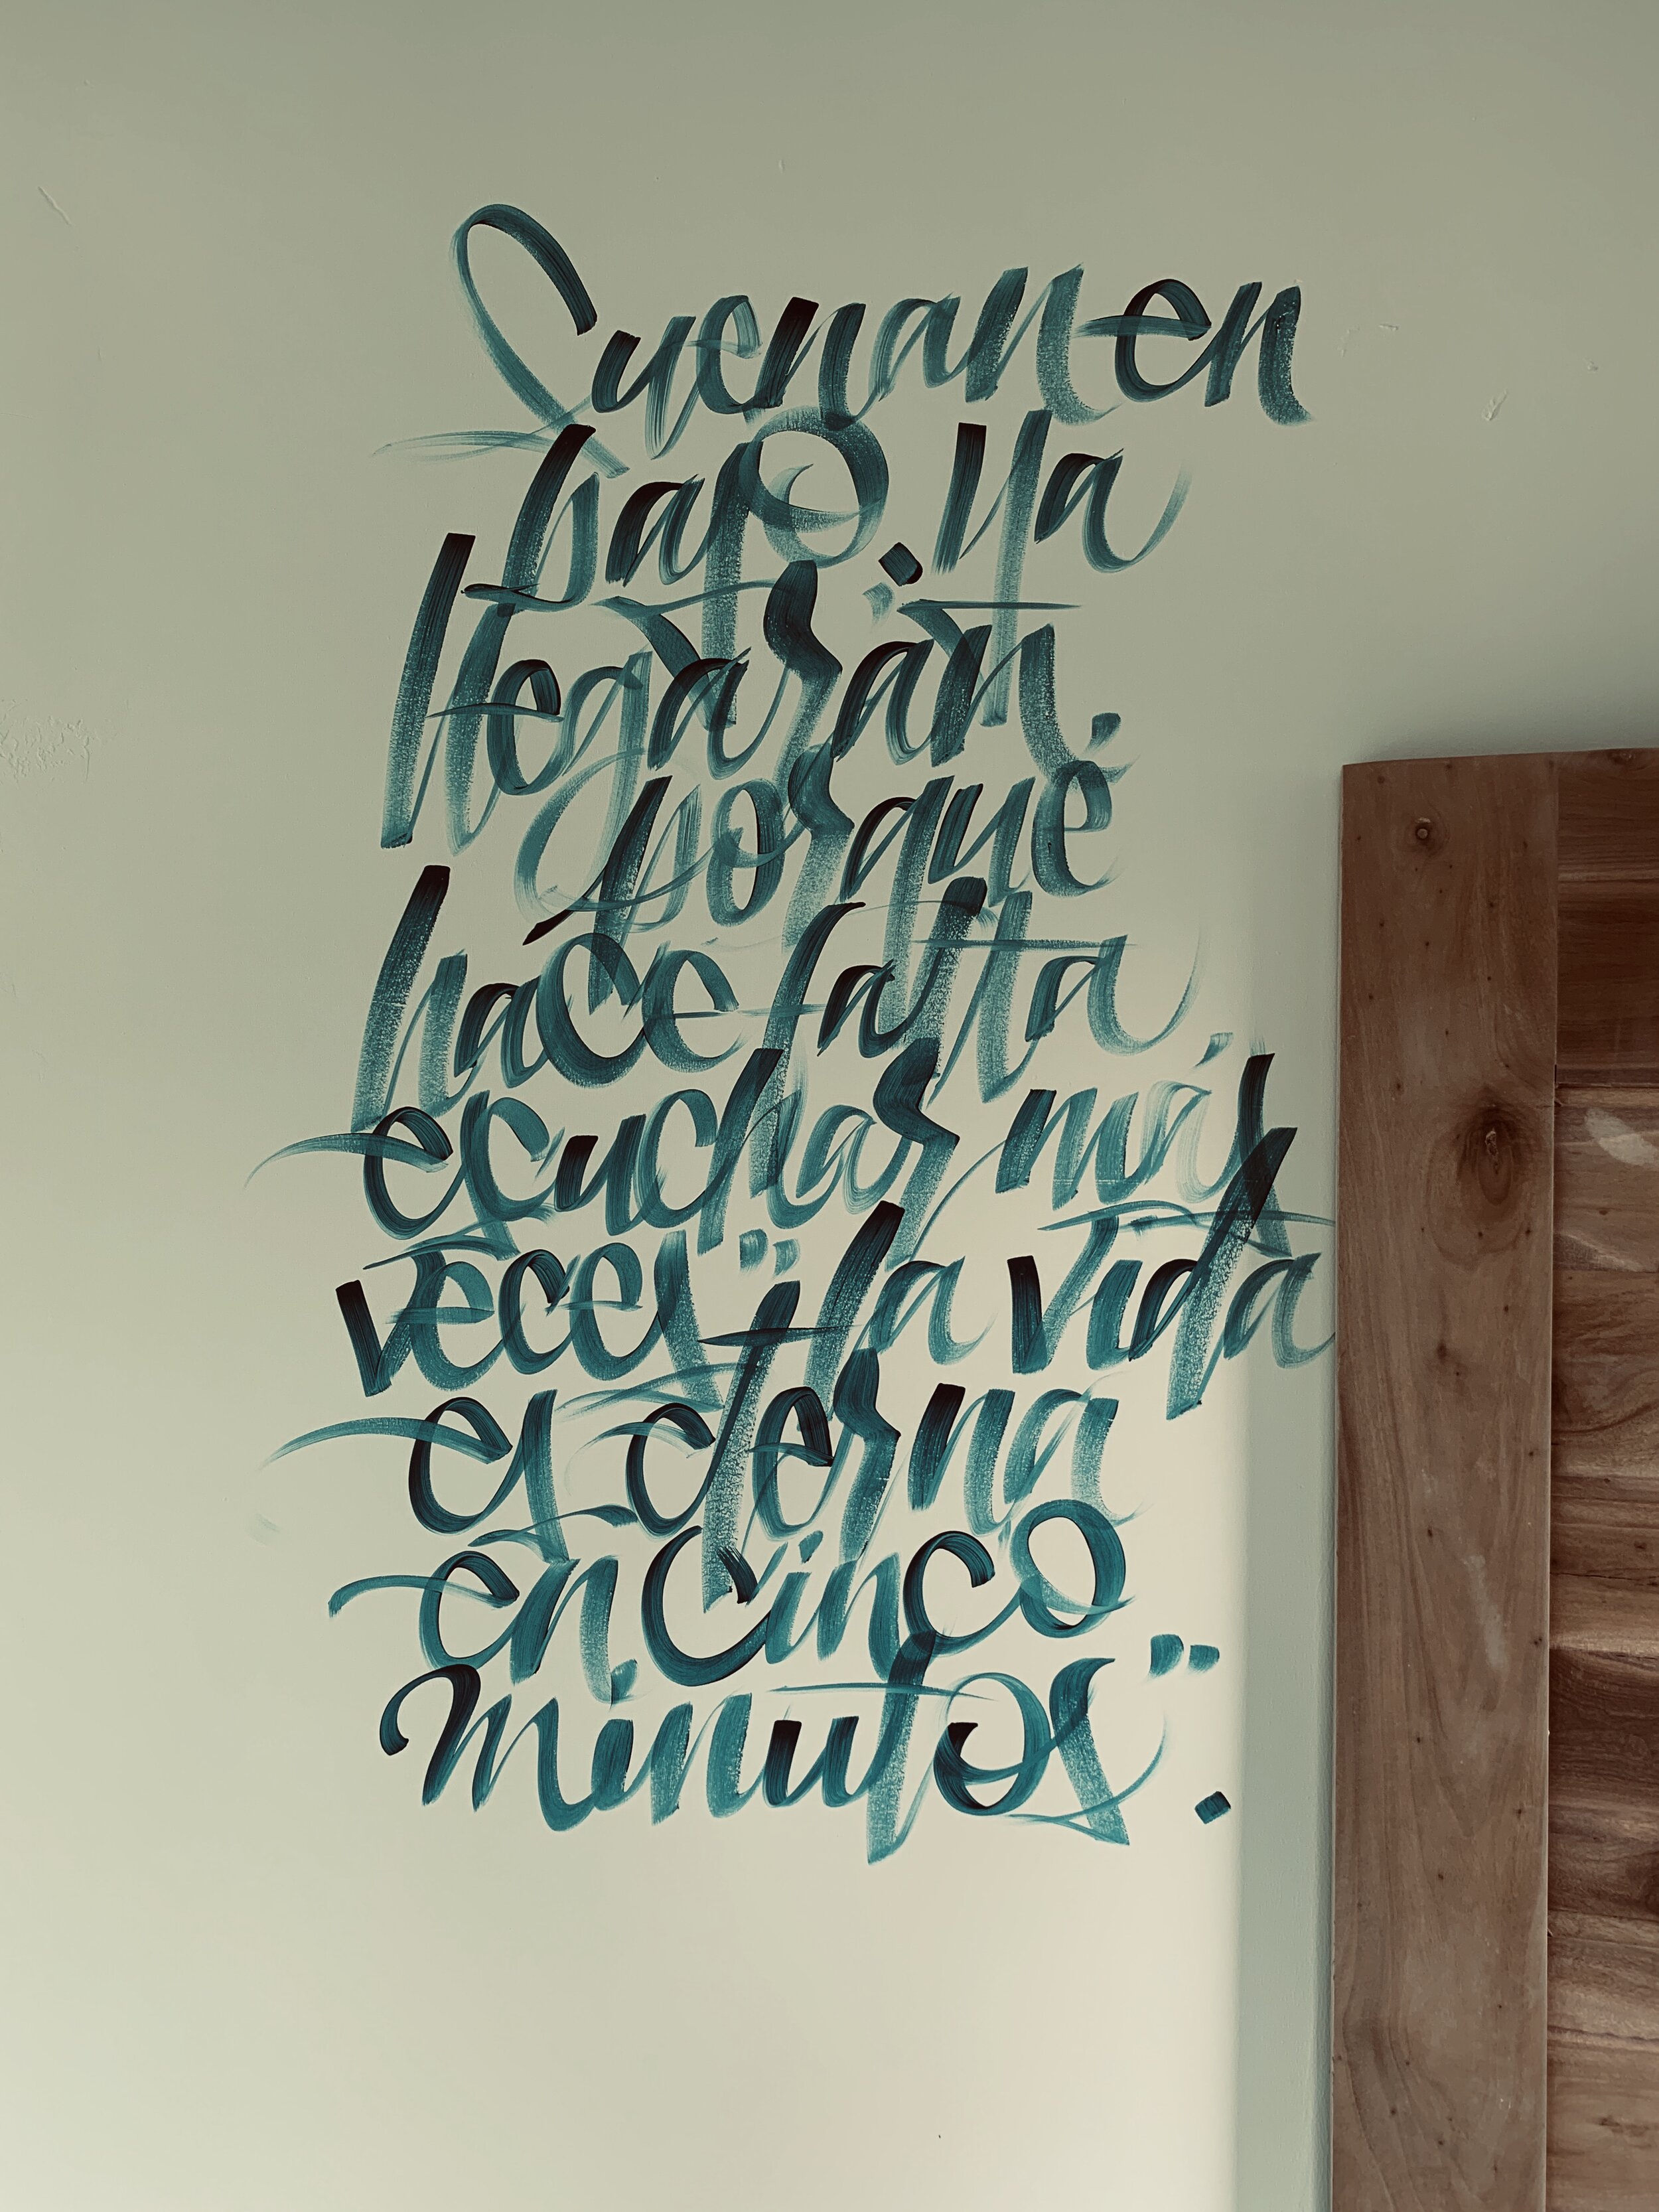 Suenan en
bajo. Ya
llegarán,
porque
hace falta
escuchar más
veces "la vida
es eterna
en cinco
minutos".